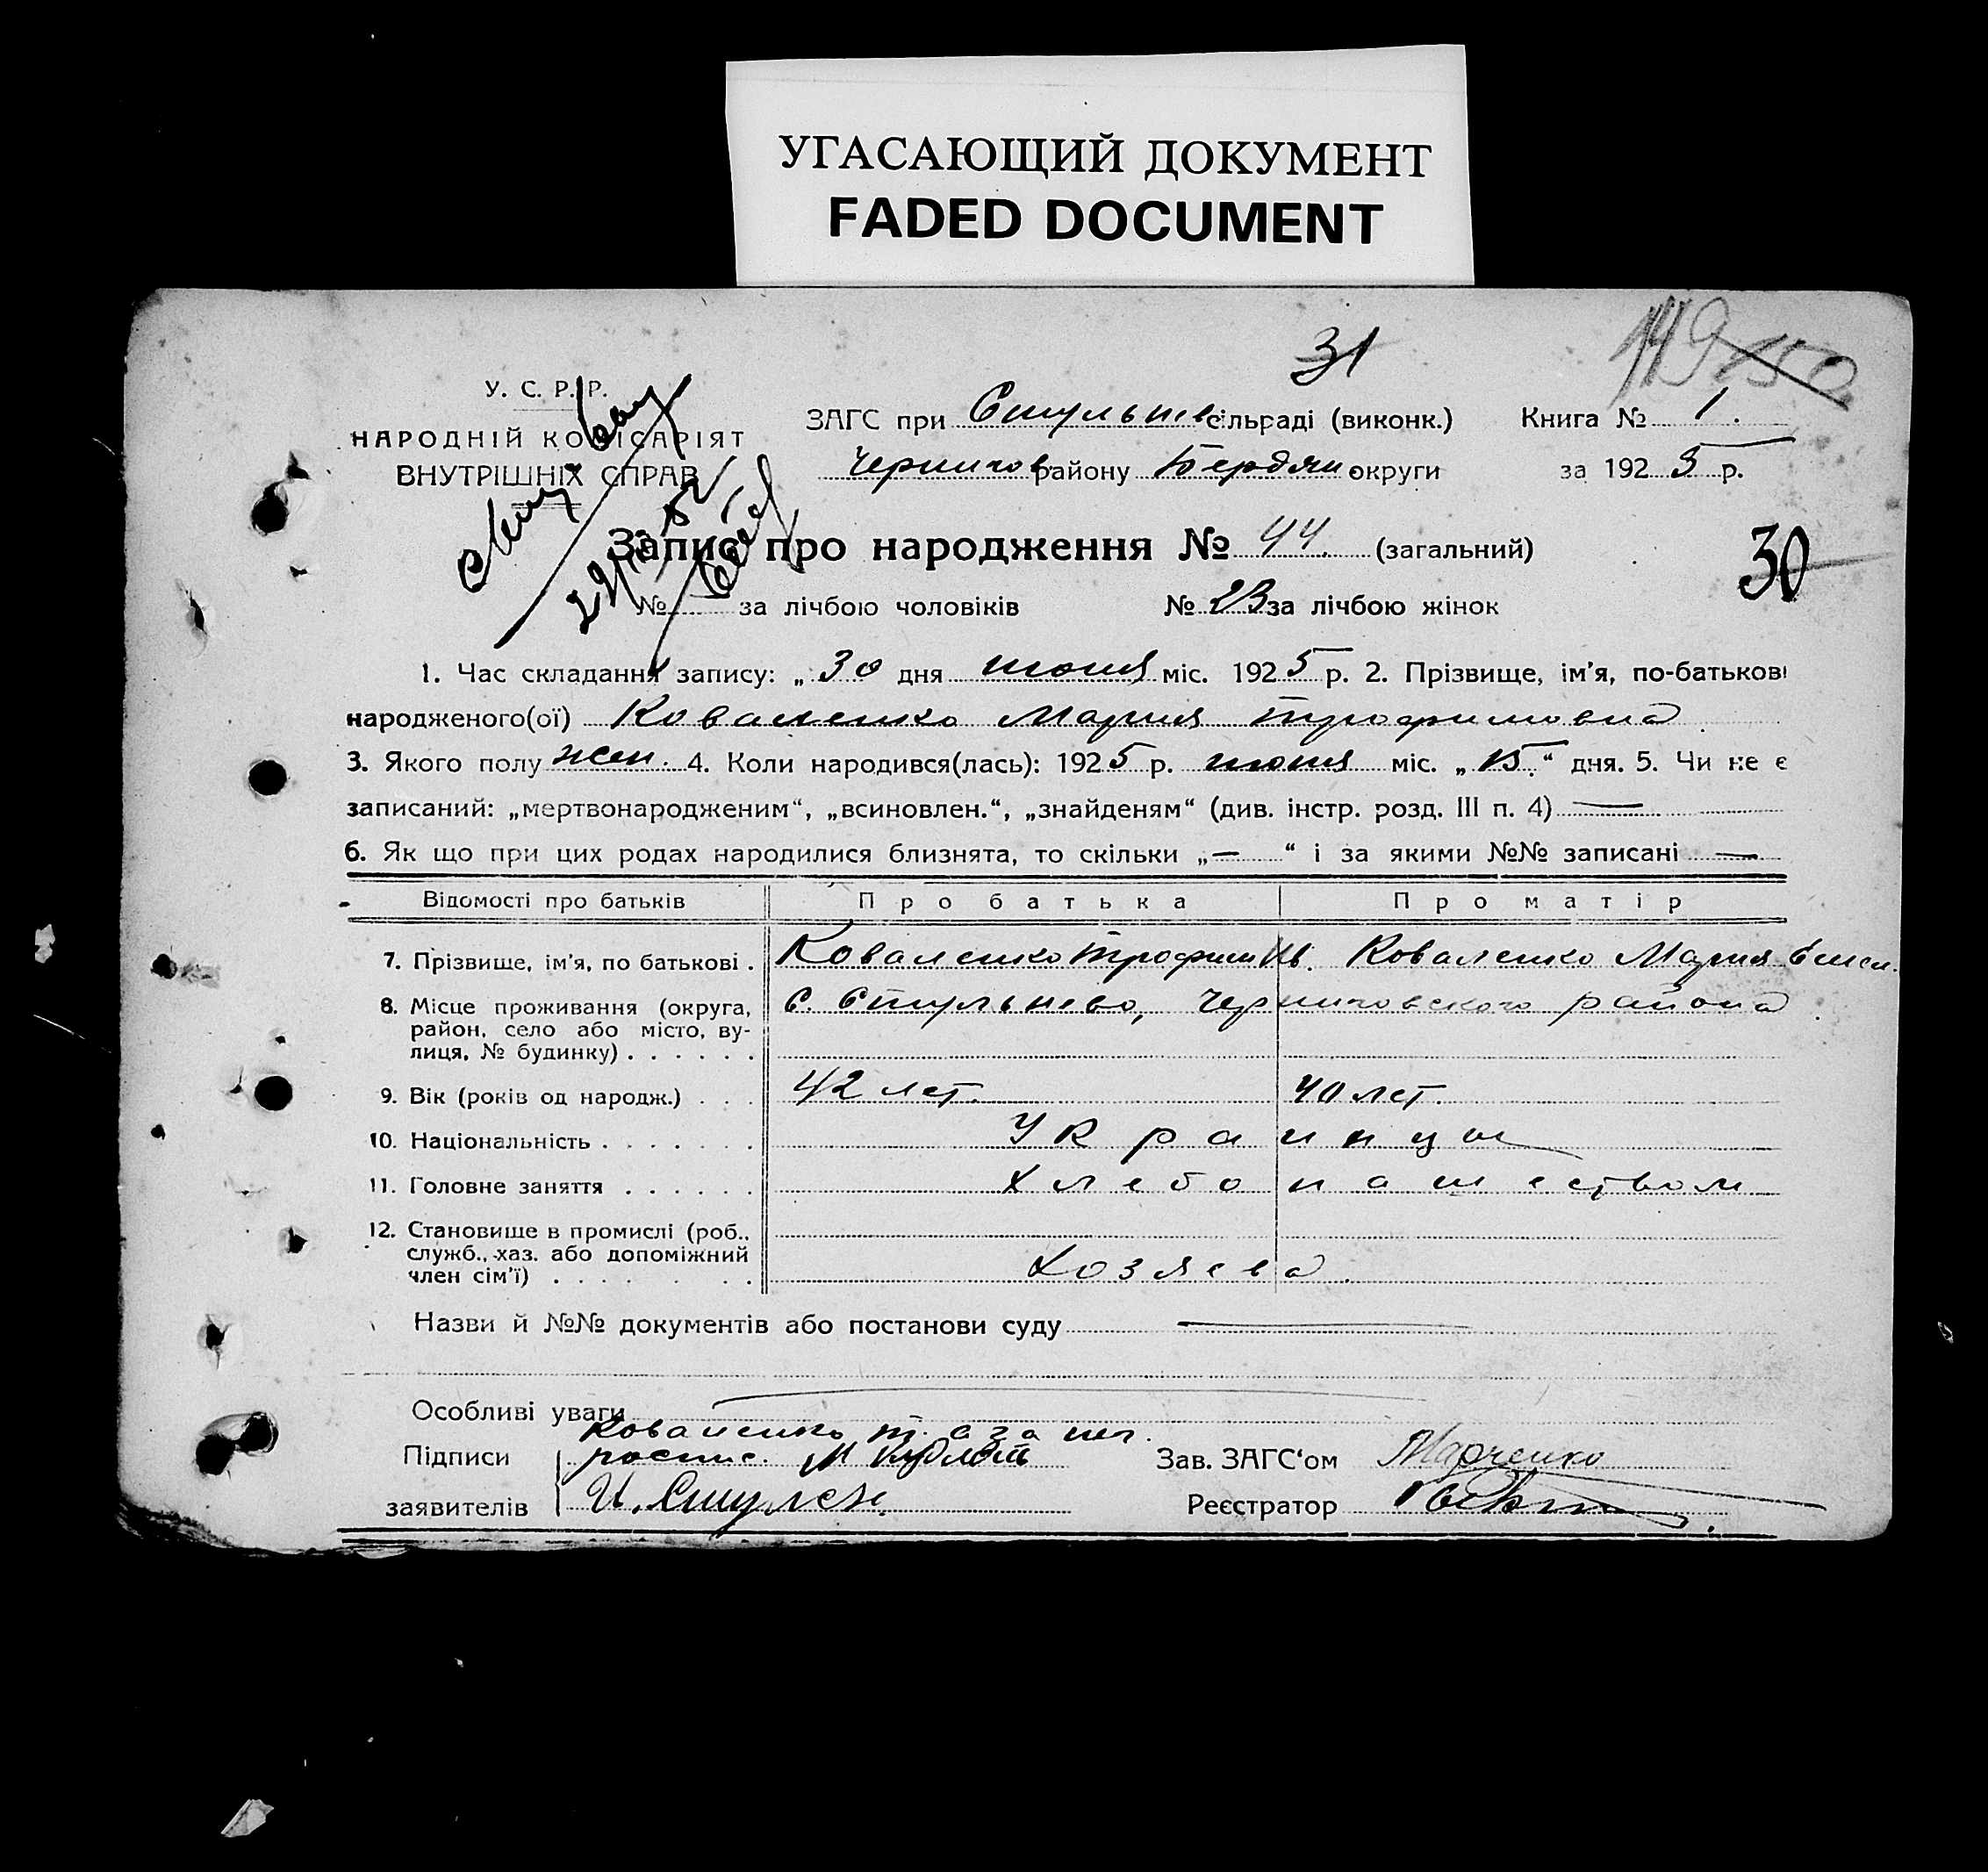 УГАСАЮЩИЙ ДОКУМЕНТ
FADED DOCUMENT
31
149 150
У. С. Р. Р.
НАРОДНІЙ КОМІСАРІЯТ
ВНУТРІШНІХ СПРАВ
ЗАГС при Стульнев сільраді (виконк.) Книга № 1.
Чернигов району Бердян округи за 1925 р.
Запис про народження № 44. (загальний)
30
№ за лічбою чоловіків № 23 за лічбою жінок
1. Час складання запису: „ 30 дня июня міс. 1925 р. 2. Прізвище, ім'я, по-батькові
народженого(ої) Коваленко Мария Трофимовна
3. Якого полу жен. 4. Коли народився(лась): 1925 р. июня міс. „15.“ дня. 5. Чи не є
записаний: „мертвонародженим“, „всиновлен.“, „знайденям“ (див. інстр. розд. III п. 4) —
6. Як що при цих родах народилися близнята, то скільки „—“ і за якими №№ записані —
Відомості про батьків Про батька Про матір
7. Прізвище, ім'я, по батькові . Коваленко Трофим Ив. Коваленко Мария
8. Місце проживання (округа, с. Стульнево, Черниговского района
район, село або місто, ву-
лиця, № будинку) . . . . . .
9. Вік (років од народж.) . . . 42 лет. 40 лет.
10. Національність . . . . . . . Украинцы
11. Головне заняття . . . . . . Хлебопашеством
12. Становище в промислі (роб.,
служб., хаз. або допоміжний
член сім'ї) . . . . . . Хозяева.
Назви й №№ документів або постанови суду —
Особливі уваги
Коваленко Т. а за нег.
Підписи роспис. М
заявителів И.
Зав. ЗАГС‘ом Марченко
Реєстратор